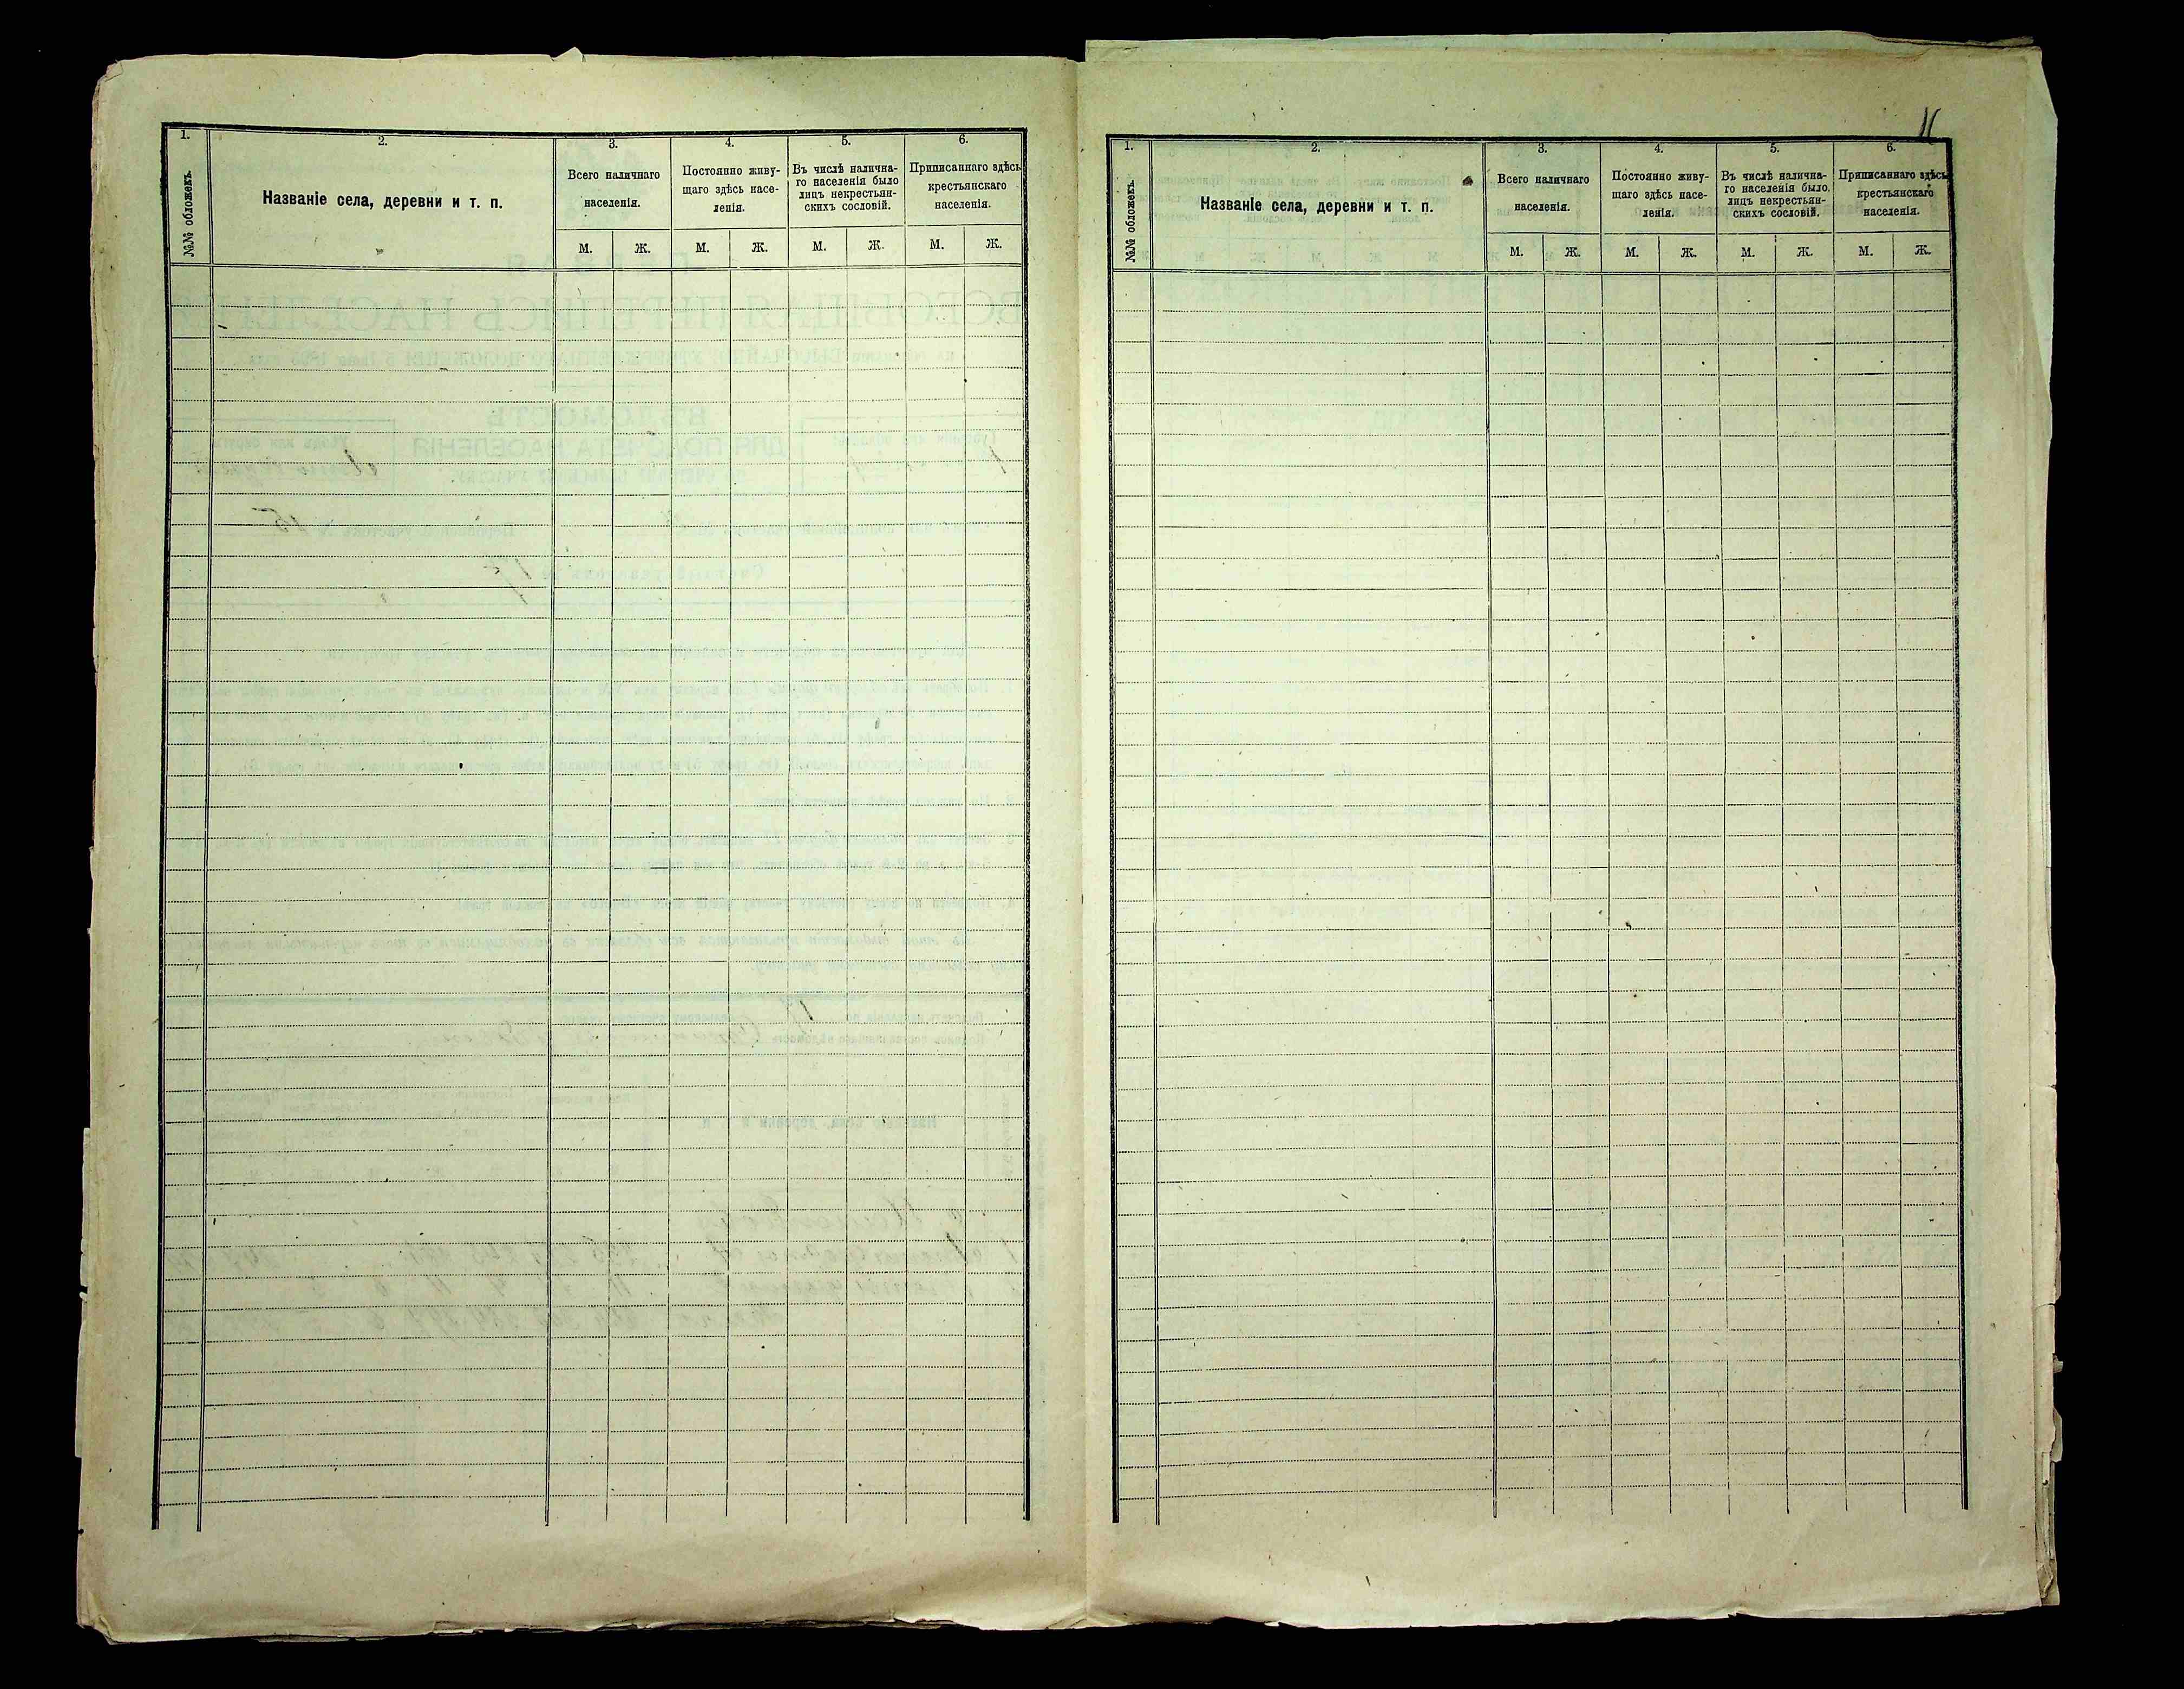 1.
2.
3.
4.
5.
6.
№№ обложекъ.
Названіе села, деревни и т. п.
Всего наличнаго
населенія.
Постоянно живу-
щаго здѣсь насе-
ленія.
Въ числѣ налична-
го населенія было
лицъ некрестьян-
скихъ сословій.
Приписаннаго здѣсь
крестьянскаго
населенія.
М. Ж. М. Ж. М. Ж. М. Ж.
11
1.
2.
3.
4.
5.
6.
№№ обложекъ.
Названіе села, деревни и т. п.
Всего наличнаго
населенія.
Постоянно живу-
щаго здѣсь насе-
ленія.
Въ числѣ налична-
го населенія было
лицъ некрестьян-
скихъ сословій.
Приписаннаго здѣсь
крестьянскаго
населенія.
М. Ж. М. Ж. М. Ж. М. Ж.